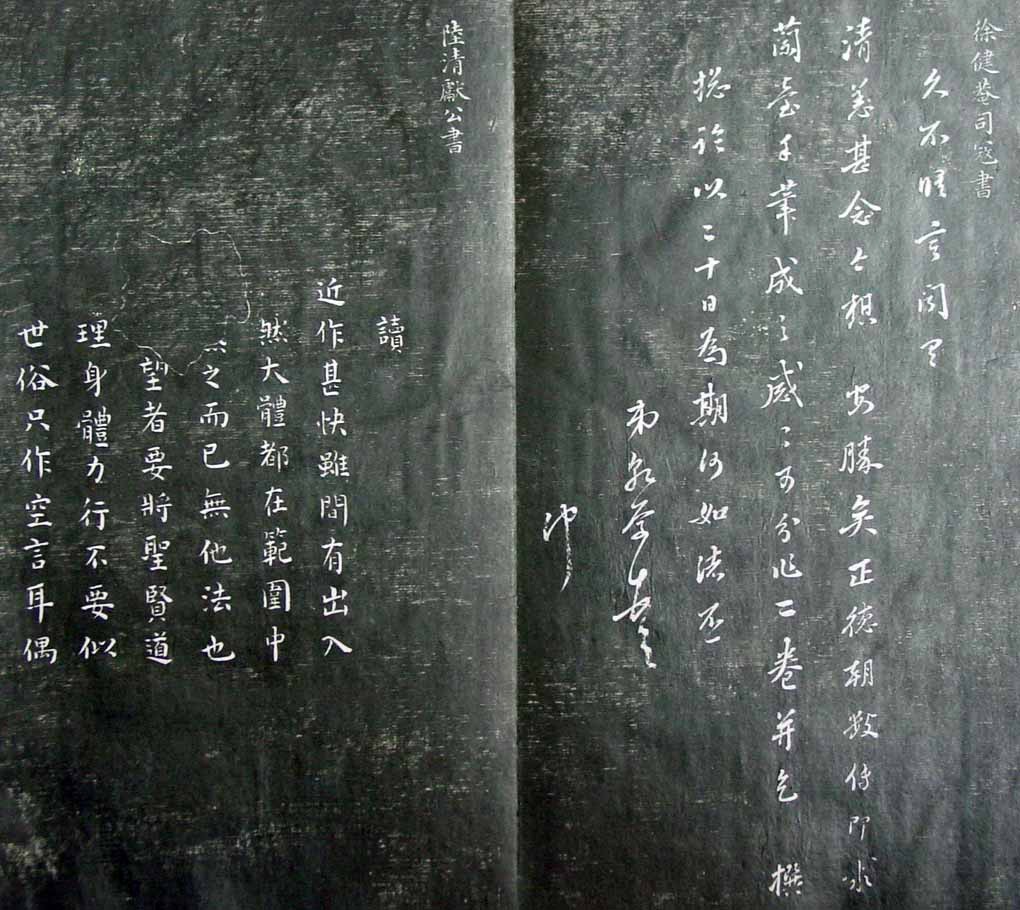 徐健菴司寇書
久不晤言聞
清恙甚念今想 安勝矣正德朝數傳即求
蘭臺手筆成之感〻可分作二卷并乞 撰
總論以二十日為期何如諸不
弟乾學
冲
陸清獻公書
讀
近作甚快雖間有出入
然大體都在範圍中
之而已無他法也
望者要將聖賢道
理身體力行不要似
世俗只作空言耳偶